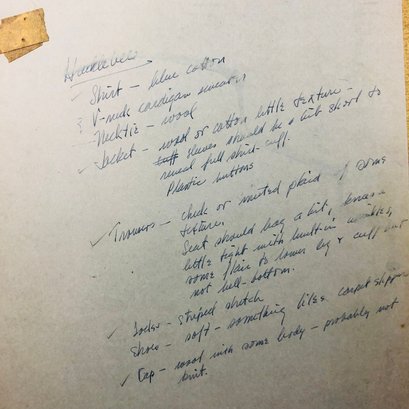 Shirt – blue cotton
V-neck cardigan sweater
Necktie – wool
Jacket – wool or cotton little texture –
sleeves should be a tib short to
reveal full shirt-cuff.
Plastic buttons
Trousers – check or muted plaid of some
texture.
Seat should bag a bit, knees a
little tight with built-in wrinkles,
some flair to lower leg & cuff but
not bell-bottom.
Socks – striped stretch
Shoes – soft – something like carpet slippers
Cap – wool with some body – probably not
knit.